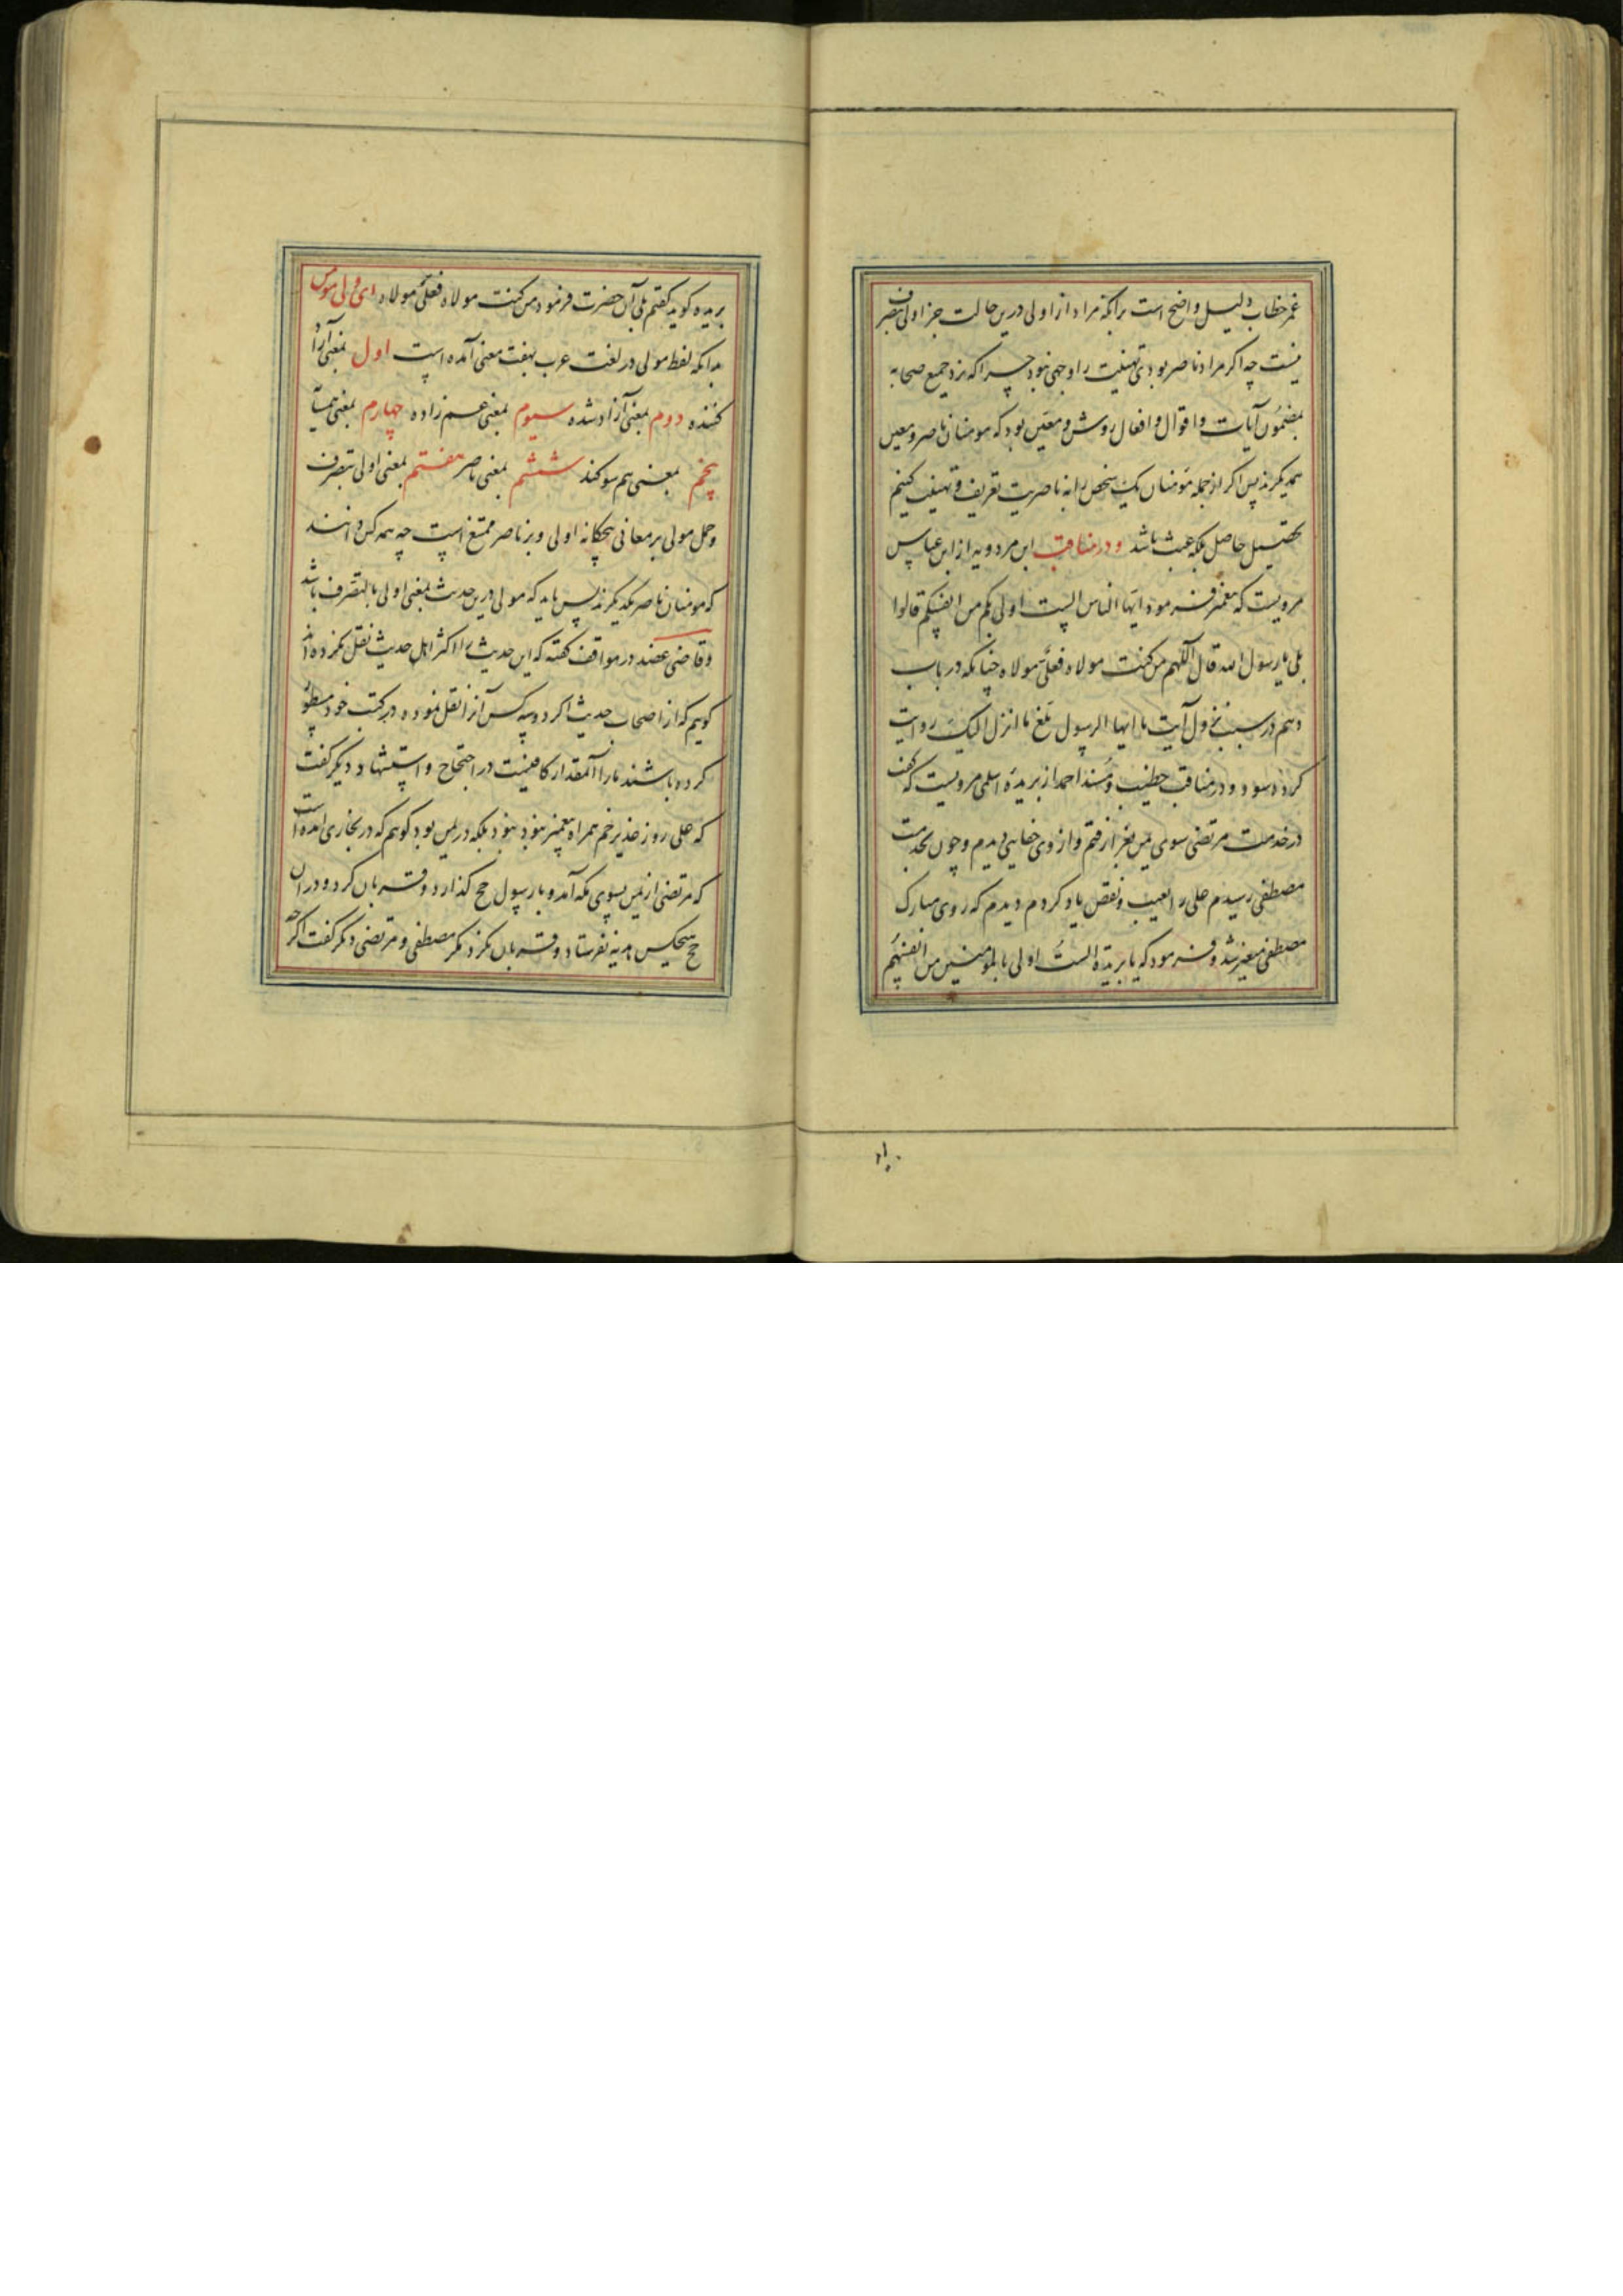 عمر خطاب دلیل واضح است برآنکه مراد از اولی درین حالت جز اولی بتصرف
نیست چه اکر مراد ناصر بودی تهنیت را وجهی نبود چرا که نزد جمیع صحابه
بمضمون آیات و اقوال و افعال روشن و معین بود که مومنان ناصر و معین
همدیکرند پس اکر از جمله مومنان یک شخص را به ناصریت تعریف و تهنیت کنیم
تحصیل حاصل بلکه عبث باشد و در مناقب ابن مردویه از ابن عباس
مرویست که پیغمبر فرمود ایها الناس الست اولی بکم من انفسکم قالوا
بلی یا رسول الله قال اللهم من کنت مولاه فعلی مولاه چنانکه در باب
دهم در سبب نزول آیت یا ایها الرسول بلغ ما انزل الیک روایت
کرده شود و در مناقب خطیب و مسند احمد از بریده اسلمی مرویست که کفت
در خدمت مرتضی سوی یمن بغزا رفتم و از وی جفایی دیدم و چون بخدمت
مصطفی رسیدم علی را بعیب و نقص یاد کردم دیدم که روی مبارک
مصطفی متغیر شد و فرمود که یا بریدة الست اولی بالمؤمنین من انفسهم
بریده کوید کفتم بلی آن حضرت فرمود من کنت مولاه فعلی مولاه ای ولی مومن
بدانکه لفظ مولی در لغت عرب بهفت معنی آمده است اول بمعنی آزاد
کننده دوم بمعنی آزاد شده سیوم بمعنی عم زاده چهارم بمعنی همسایه
پنجم بمعنی هم سوکند ششم بمعنی ناصر هفتم بمعنی اولی بتصرف
و حمل مولی بر معانی پنجکانه اولی و بر ناصر ممتنع است چه همه کس دانند
که مومنان ناصر یکدیکرند پس باید که مولی درین حدیث بمعنی اولی بالتصرف باشد
و قاضی عضد در مواقف کفته که این حدیث را اکثر اهل حدیث نقل نکرده اند
کوییم که از اصحاب حدیث اکر دو سه کس آنرا نقل نموده در کتب خود مسطور
کرده باشند ما را آنمقدار کافیست در احتجاج و استشهاد دیکر کفت
که علی روز غدیر خم همراه پیغمبر نبود بلکه در یمن بود کوییم که در بخاری آمده است
که مرتضی از یمن بسوی مکه آمد و با رسول حج کذارد و قربان کرد و در آن
حج هیچکس هدیه نفرستاد و قربان نکرد مکر مصطفی و مرتضی دیکر کفت اکرچه